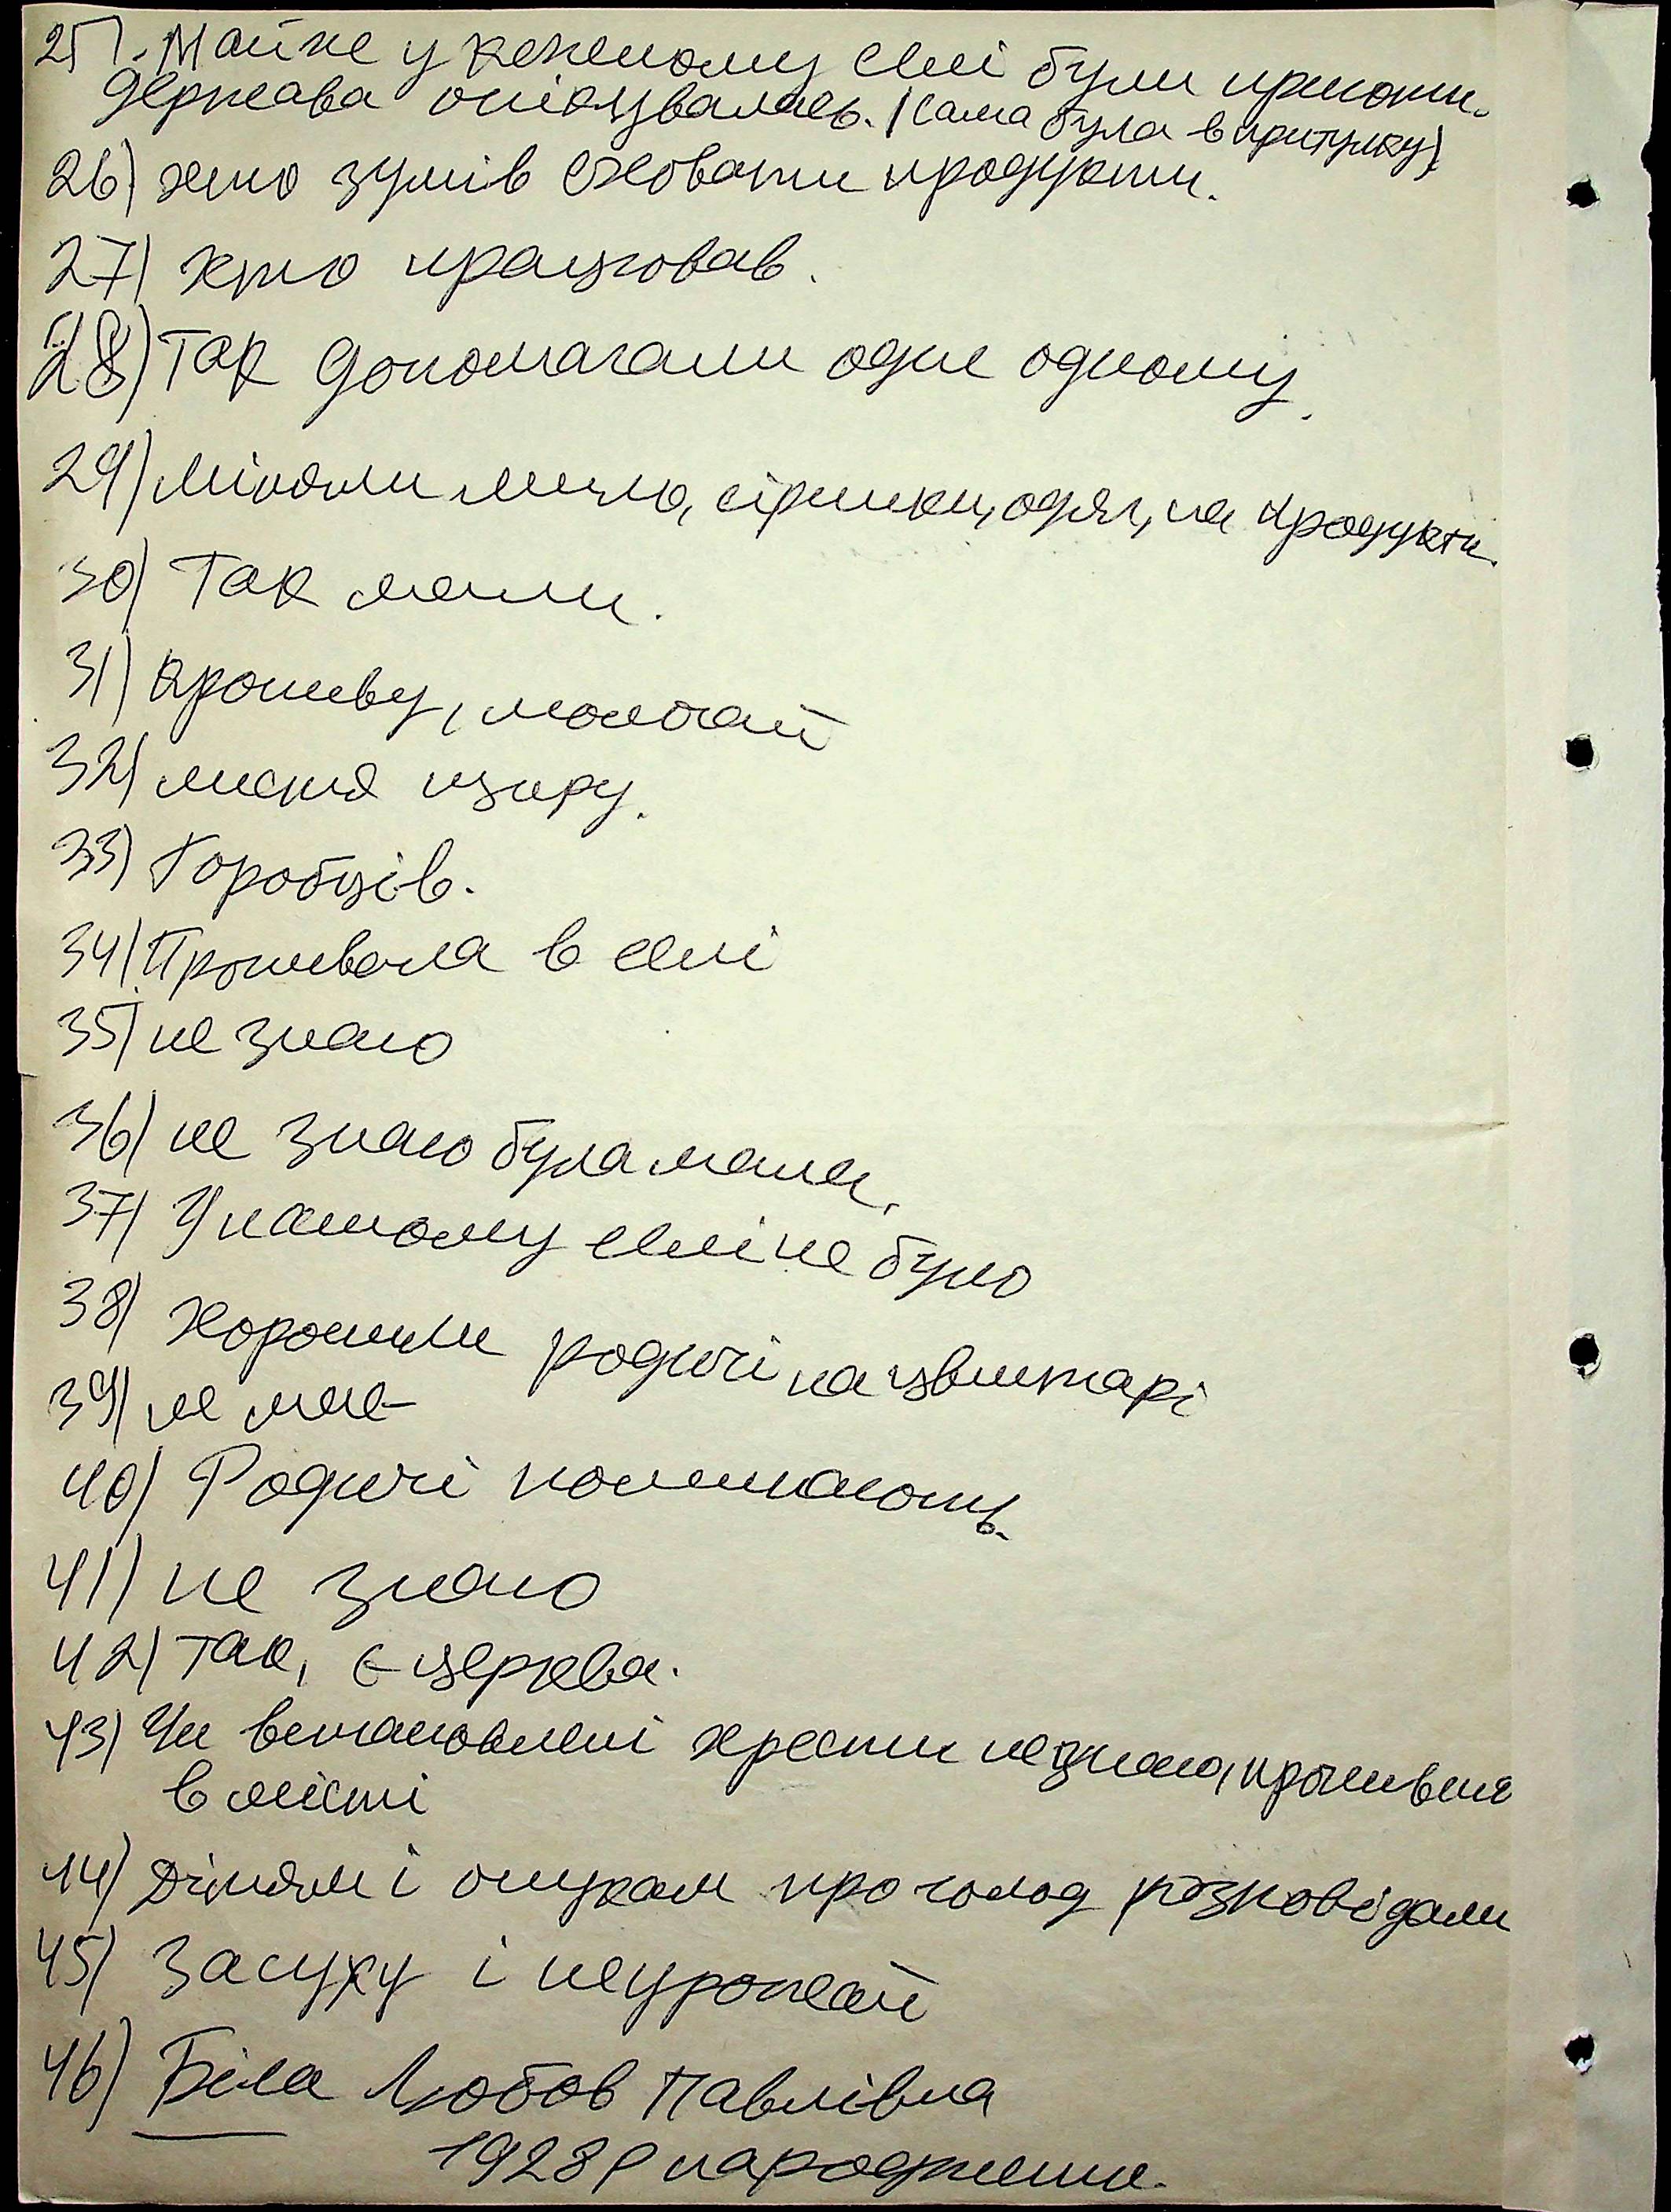 25). Майже у кожному селі були притони.
Держава опікувалась. (Сама була в притулку)
26) хто зумів сховати продукти.
27) хто працював.
28) Так допомагали одне одному.
29) Міняли мило, сірники, одяг, на продукти.
30) Так мали.
31) кропиву, молочай
32) листя щиру.
33) Горобців.
34) Проживала в селі
35) не знаю
36) не знаю була мала.
37) У нашому селі не було
38) хоронили родичі на цвинтарі
39) не має
40) Родичі поминають.
41) не знаю
42) так, є церква.
43) Чи встановлені хрести не знаю, проживаю
в місті
44) Дітям і онукам про голод розповідали
45) Засуху і неурожай
46) Біла Любов Павлівна
1928 р народження.